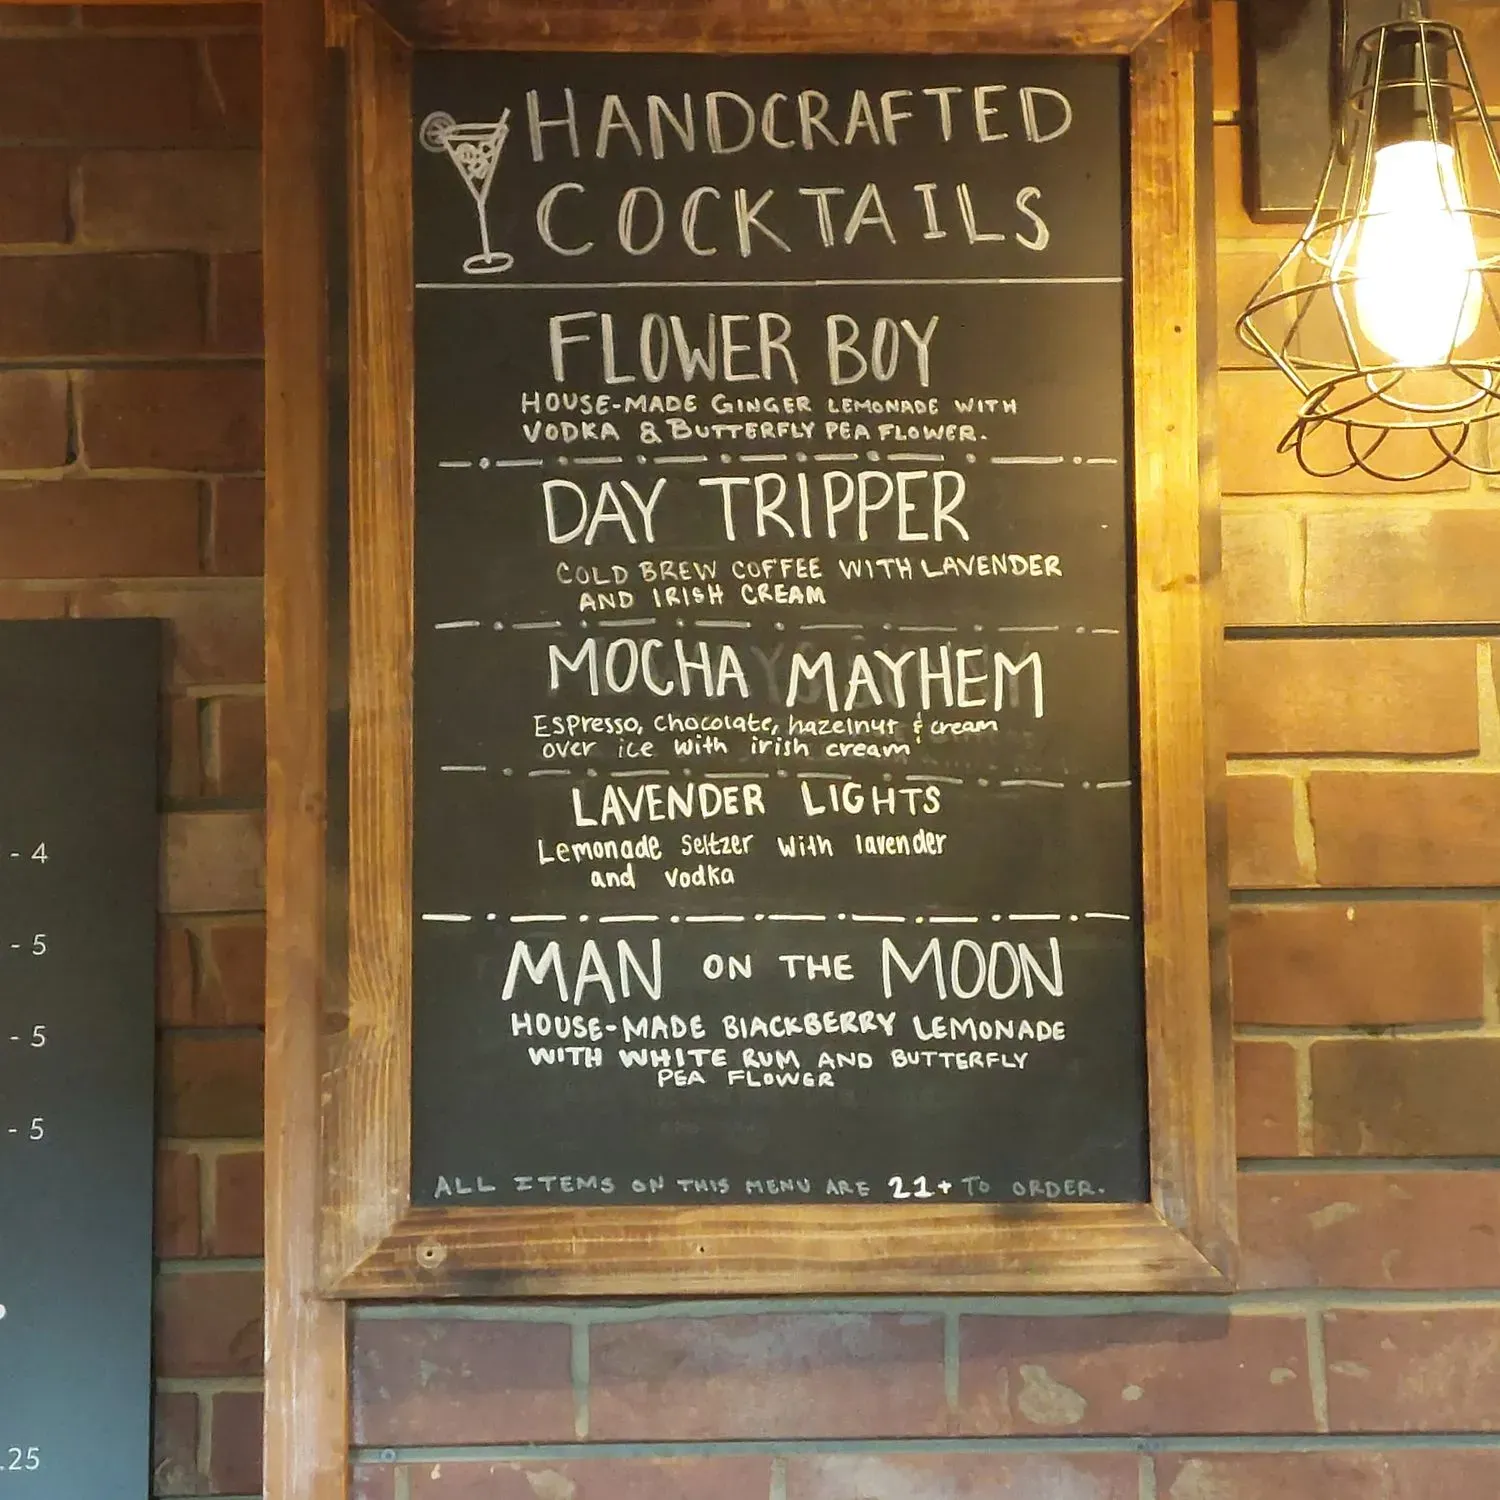 HANDCRAFTED
COCKTAILS
FLOWER BOY
HOUSE-MADE GINGER LEMONADE WITH
VODKA & BUTTERFLY PEA FLOWER.
DAY TRIPPER
COLD BREW COFFEE WITH LAVENDER
AND IRISH CREAM
MOCHA MAYHEM
Espresso, chocolate, hazelnut & cream
over ice with irish cream
LAVENDER LIGHTS
Lemonade Seltzer with lavender
and vodka
MAN ON THE MOON
HOUSE-MADE BLACKBERRY LEMONADE
WITH WHITE RUM AND BUTTERFLY
PEA FLOWER
ALL ITEMS ON THIS MENU ARE 21+ TO ORDER.
- 4
- 5
- 5
- 5
.25